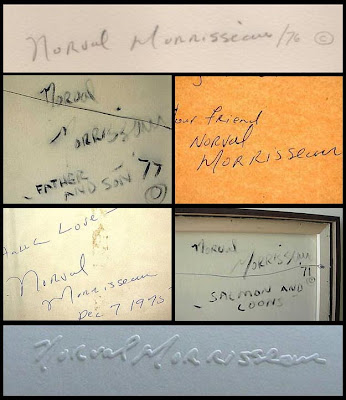 Norval Morrisseau /76 ©
Norval
Morrisseau
'77
FATHER
AND SON ©
your friend
NORVAL
MORRISSEAU
Love
Norval
Morrisseau
Dec 7 1975
Norval
Morrisseau
'77
©
SALMON AND
LOONS
Norval Morrisseau